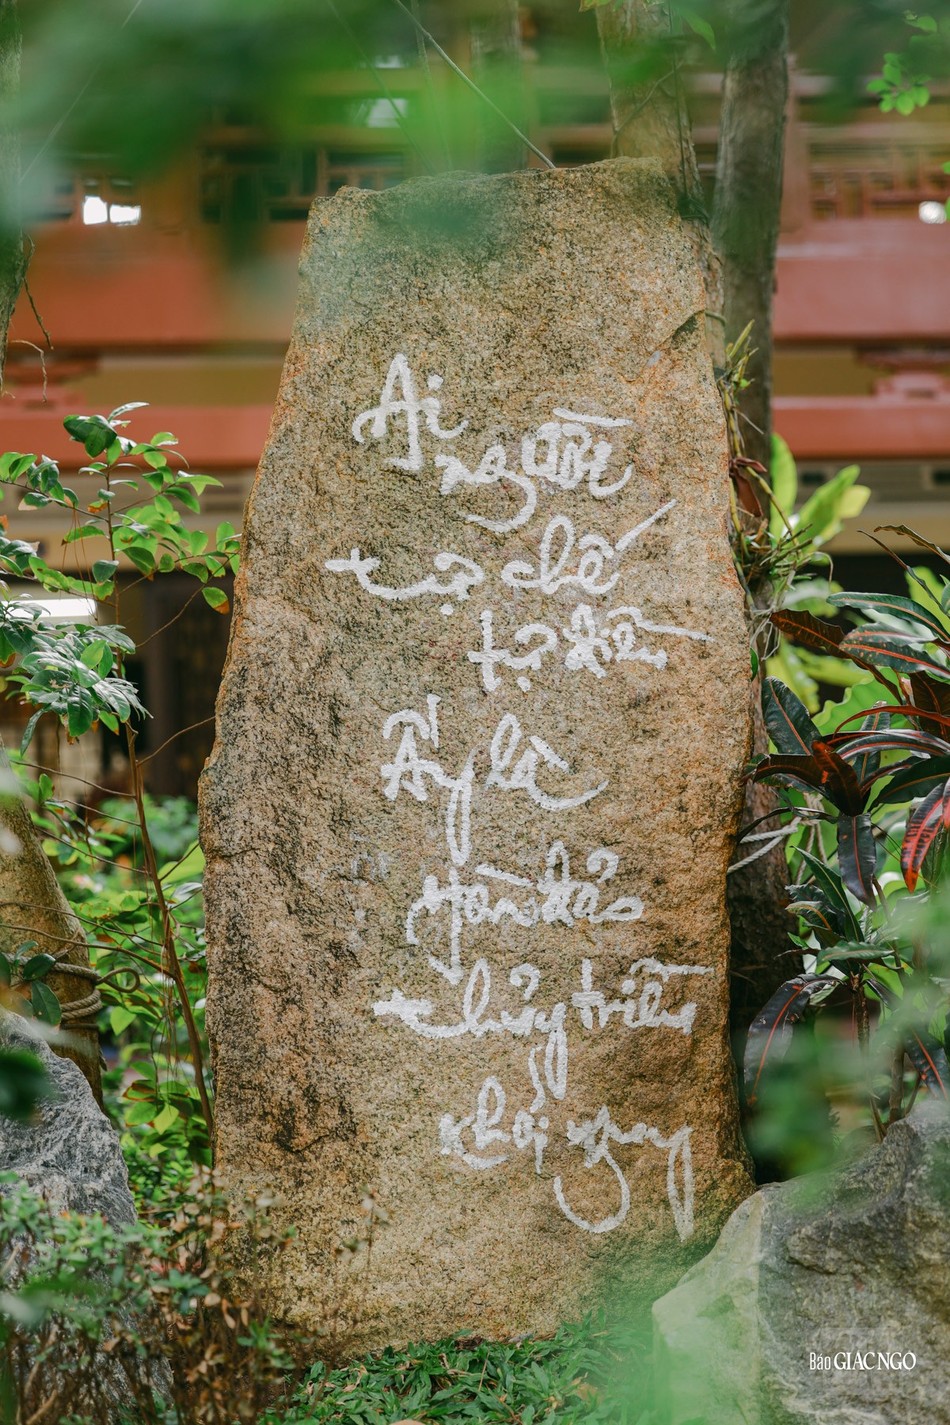 Ai
người
tự chế
tự điều
Ấy là
Hòn đảo
thủy triều
khôi ngay
Báo GIACNGO